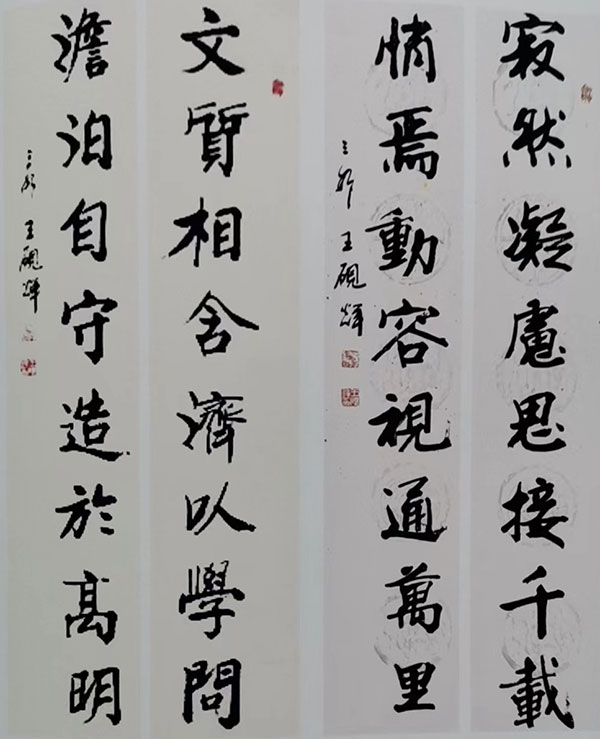 寂然凝慮思接千載
悄焉動容視通萬里
王硯輝
文質相含濟以學問
澹泊自守造於高明
王硯輝